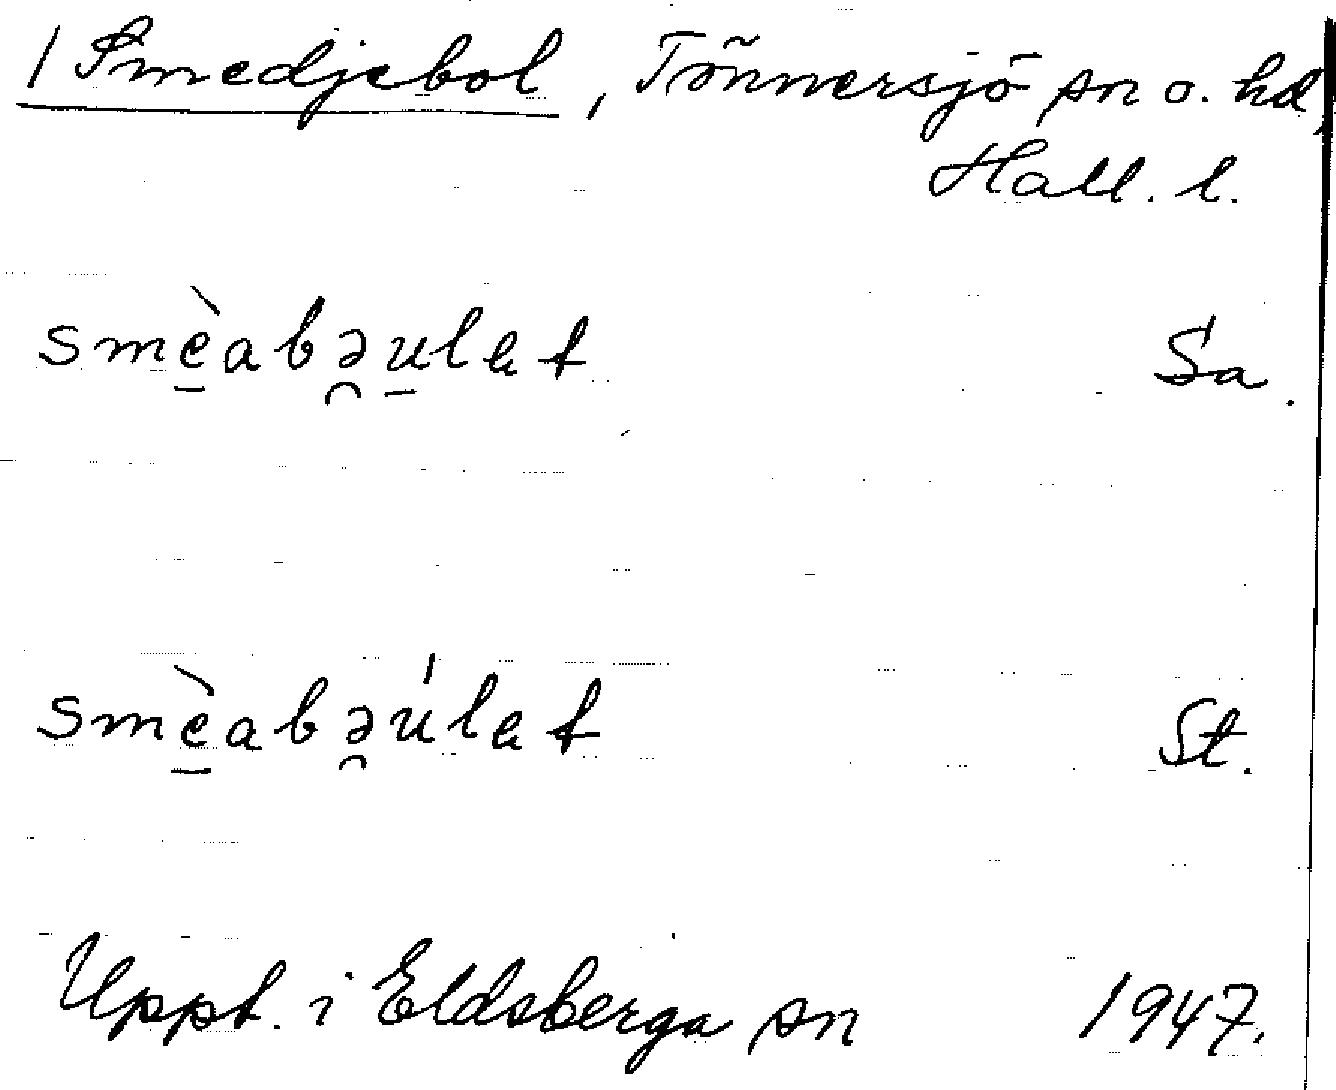 1 Smedjebol, Tönnersjö sn o. hd,
Hall. l.
smè̠abə̯u̠lət Sa.
smè̠abə̯u̍lət St.
Uppt. i Eldsberga sn 1947.